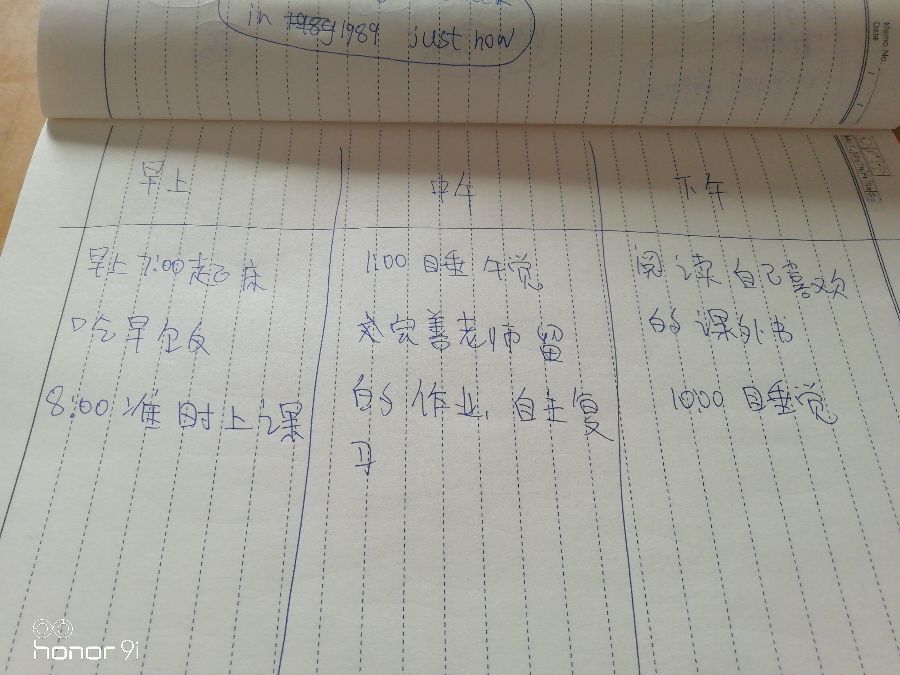 in 1989 just now
Memo No.
Date
早上 中午 下午
早上7:00起床
吃早饭
8:00准时上课
1:00睡午觉
完善老师留
的作业,自主复
习
阅读自己喜欢
的课外书
10:00睡觉
honor 9i